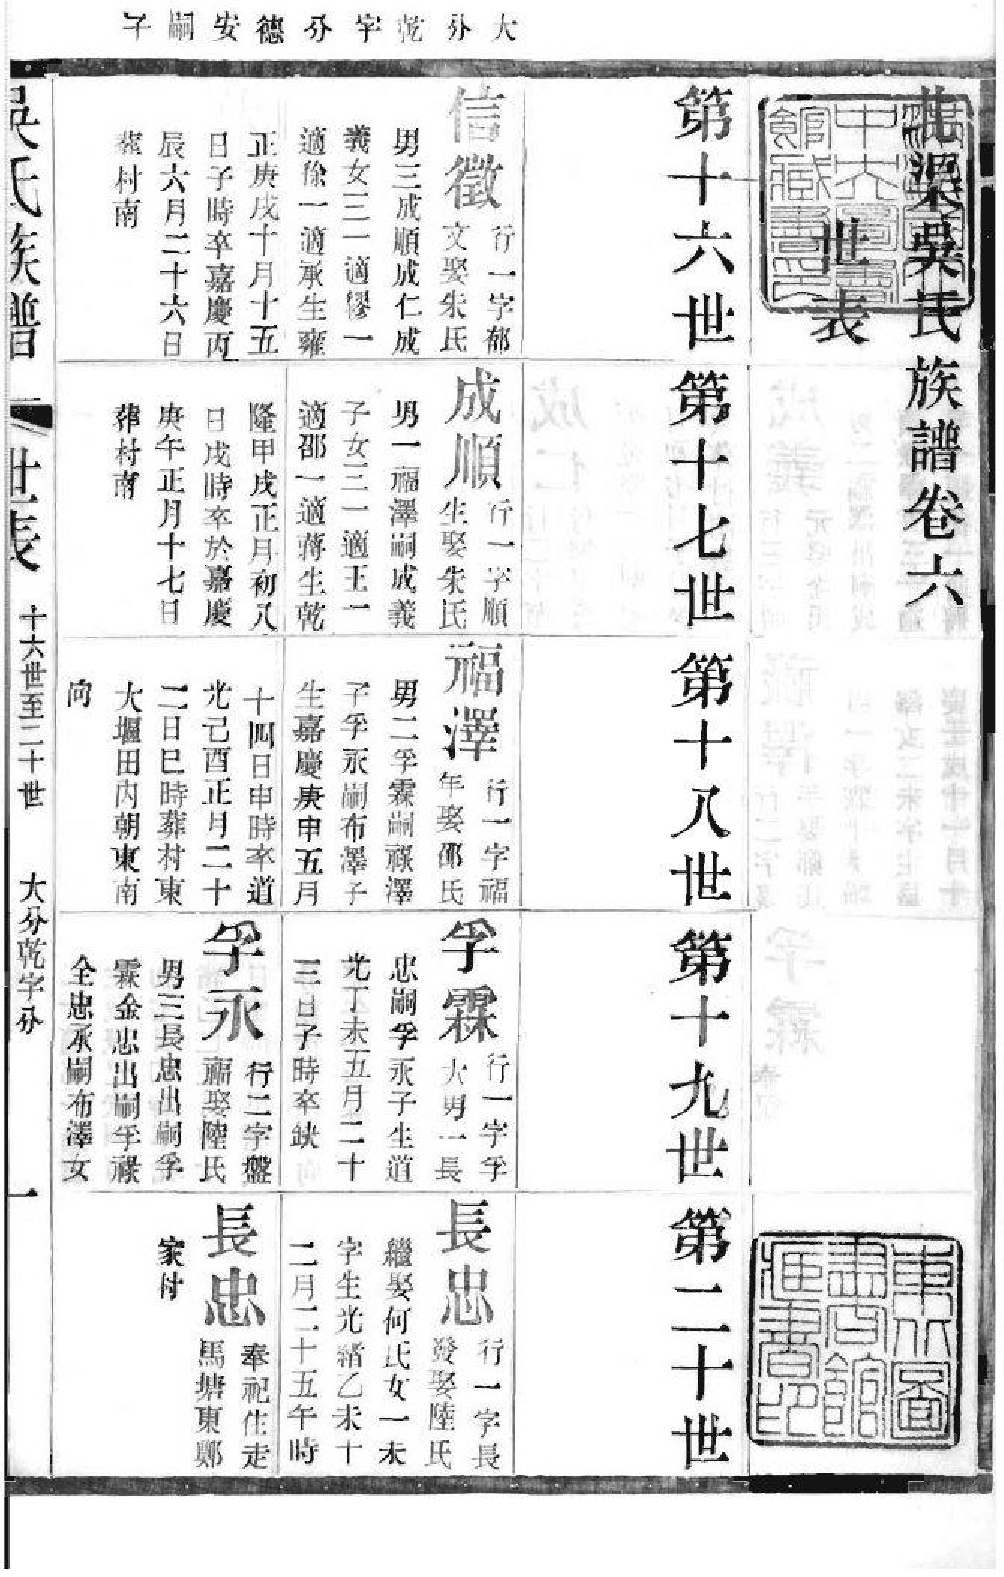 大分乾字分德安嗣子
北渠吳氏族譜卷六
世表
第十六世
信徵
行一字郁
文娶朱氏
男三成順成仁成
義女三一適繆一
適徐一適承生雍
正庚戌十月十五
日子時卒嘉慶丙
辰六月二十六日
葬村南
第十七世
成順
行一字順
生娶朱氏
男一福澤嗣成義
子女三一適王一
適邵一適蔣生乾
隆甲戌正月初八
日戌時卒於嘉慶
庚午正月十七日
葬村南
第十八世
福澤
行一字福
年娶邵氏
男二孚霖嗣祿澤
子孚永嗣布澤子
生嘉慶庚申五月
十四日申時卒道
光己酉正月二十
二日巳時葬村東
大堰田內朝東南
向
第十九世
孚霖
行一字孚
大男一長
忠嗣孚永子生道
光丁未五月二十
三日子時卒缺
孚永
行二字盤
福娶陸氏
男三長忠出嗣孚
霖金忠出嗣孚祿
全忠承嗣布澤女
第二十世
長忠
行一字長
發娶陸氏
繼娶何氏女一未
字生光緒乙未十
二月二十五午時
長忠
奉祀住走
馬塘東鄭
家村
吳氏族譜
世表
十六世至二十世
大分乾字分
一
東北圖
書館
藏書印